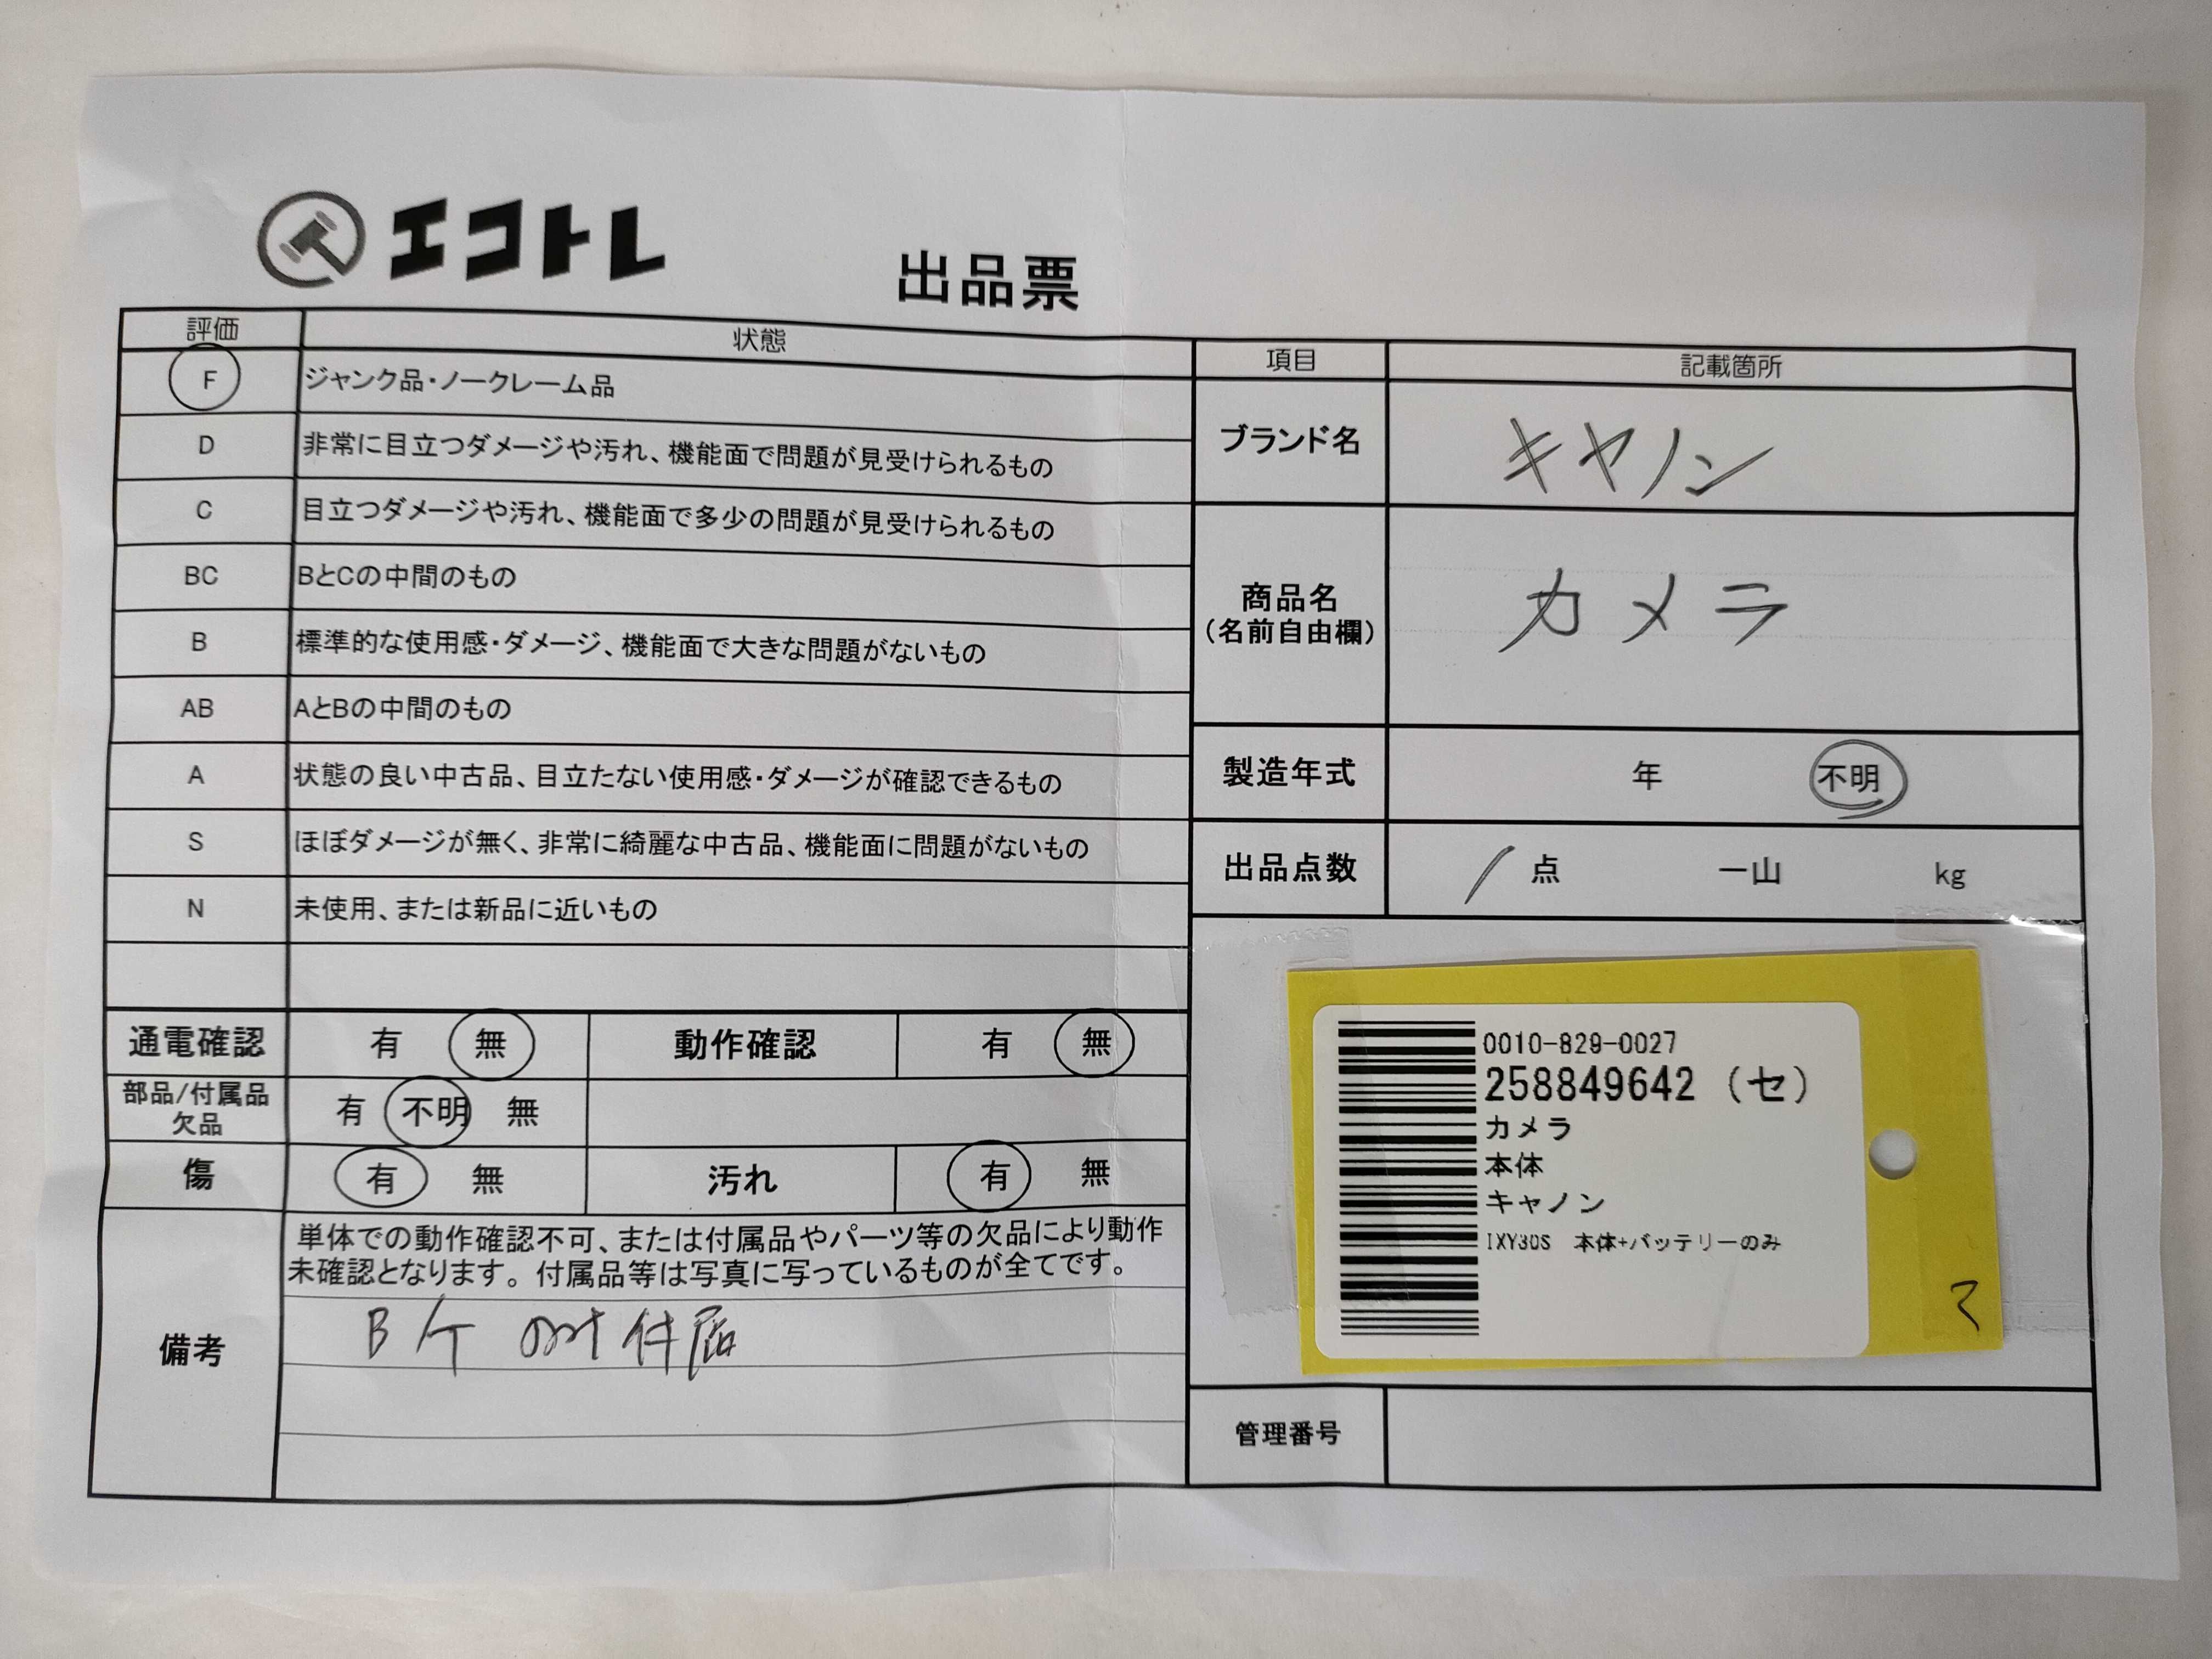 エコトレ
出品票
評価 状態
F ジャンク品・ノークレーム品
D 非常に目立つダメージや汚れ、機能面で問題が見受けられるもの
C 目立つダメージや汚れ、機能面で多少の問題が見受けられるもの
BC BとCの中間のもの
B 標準的な使用感・ダメージ、機能面で大きな問題がないもの
AB AとBの中間のもの
A 状態の良い中古品、目立たない使用感・ダメージが確認できるもの
S ほぼダメージが無く、非常に綺麗な中古品、機能面に問題がないもの
N 未使用、または新品に近いもの
通電確認 有 無 動作確認 有 無
部品/付属品
欠品
有 不明 無
傷 有 無 汚れ 有 無
備考
単体での動作確認不可、または付属品やパーツ等の欠品により動作
未確認となります。付属品等は写真に写っているものが全てです。
付属
項目 記載箇所
ブランド名 キヤノン
商品名
(名前自由欄)
カメラ
製造年式 年 不明
出品点数 1 点 一山 kg
0010-829-0027
258849642 (セ)
カメラ
本体
キャノン
IXY30S 本体+バッテリーのみ
管理番号